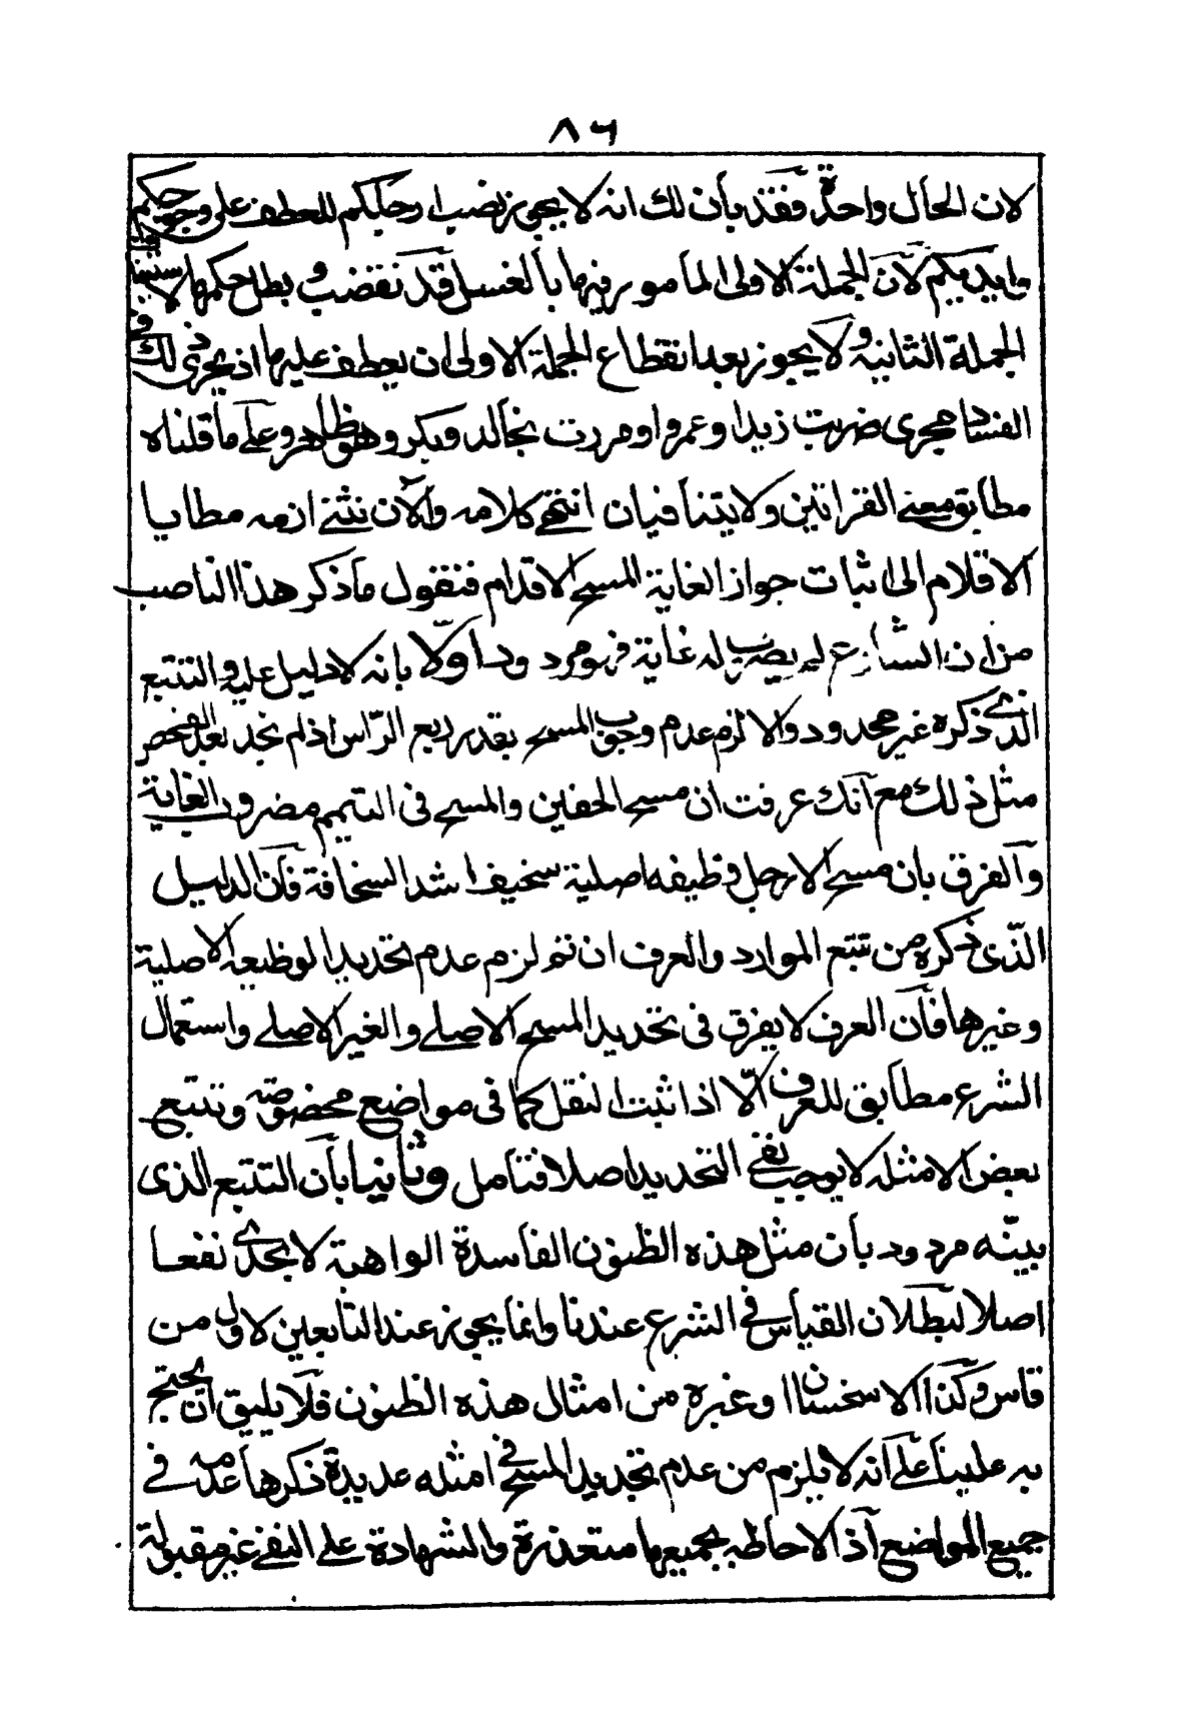 ٨٦
لان الحال واحدة فقد بان لك انه لا يجوز نصب ارجلكم للعطف على وجوهكم
وايديكم لان الجملة الاولى المامور فيها بالغسل قد نقضت و بطل حكمها باستيناف
الجملة الثانية ولا يجوز بعد انقطاع الجملة الاولى ان يعطف عليها اذ يجرى ذلك فى
الفساد مجرى ضربت زيدا وعمروا ومررت بخالد وبكر وهو ظاهر وعلى ما قلناه
مطابق معنى القرائتين ولا يتنافيان انتهى كلامه والآن نثنى ازمه مطايا
الاقلام الى اثبات جواز الغاية المسح الاقدام فنقول ما ذكر هذا الناصب
من ان الشارع لم يضرب له غاية فهو مردود اولا بانه لا دليل عليه والتتبع
الذى ذكره غير محدود والا لزم عدم وجوب المسح بقدر ربع الرأس اذ لم نجد بعد الفحص
مثل ذلك مع انك عرفت ان مسح الخفين والمسح فى التيمم مضروب الغاية
والفرق بان مسح الارجل وظيفه اصلية سخيف اشد السخافة فان الدليل
الذى ذكره من تتبع الموارد والعرف ان تم لزم عدم تحديد الوظيعه الاصلية
وغيرها فان العرف لا يفرق فى تحديد المسح الاصلى والغير الاصلى واستعمال
الشرع مطابق للعرف الا اذا ثبت النقل كما فى مواضع مخصوصه وتتبع
بعض الامثله لا يوجب نفى التحديد اصلا فتامل وثانيا بان التتبع الذى
بينه مردود بان مثل هذه الظنون الفاسدة الواهية لا يجدى نفعا
اصلا لبطلان القياس فى الشرع عندنا وانما يجوز عند التابعين لاول من
قاس وكذا الاستحسان او غيره من امثال هذه الظنون فلا يليق ان يحتج
به علينا على انه لا يلزم من عدم تحديد المسح فى امثله عديدة ذكرها عدمه فى
جميع المواضع اذ الاحاطه بجميعها متعذرة والشهادة على النفى غير مقبولة